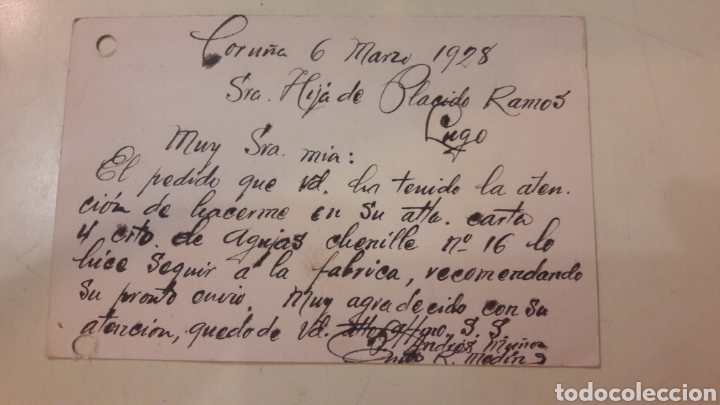 Coruña 6 Marzo 1928
Sra. Hija de Placido Ramos
Lugo
Muy Sra. mia:
El pedido que vd. ha tenido la aten-
ción de hacerme en su atta. carta
4 crto. de Agujas chenille nº 16 lo
hice seguir á la fabrica, recomendando
su pronto envio. Muy agradecido con su
atención, quedo de Vd. S. S.
Andrés Muñoz
R. Medín
todocoleccion